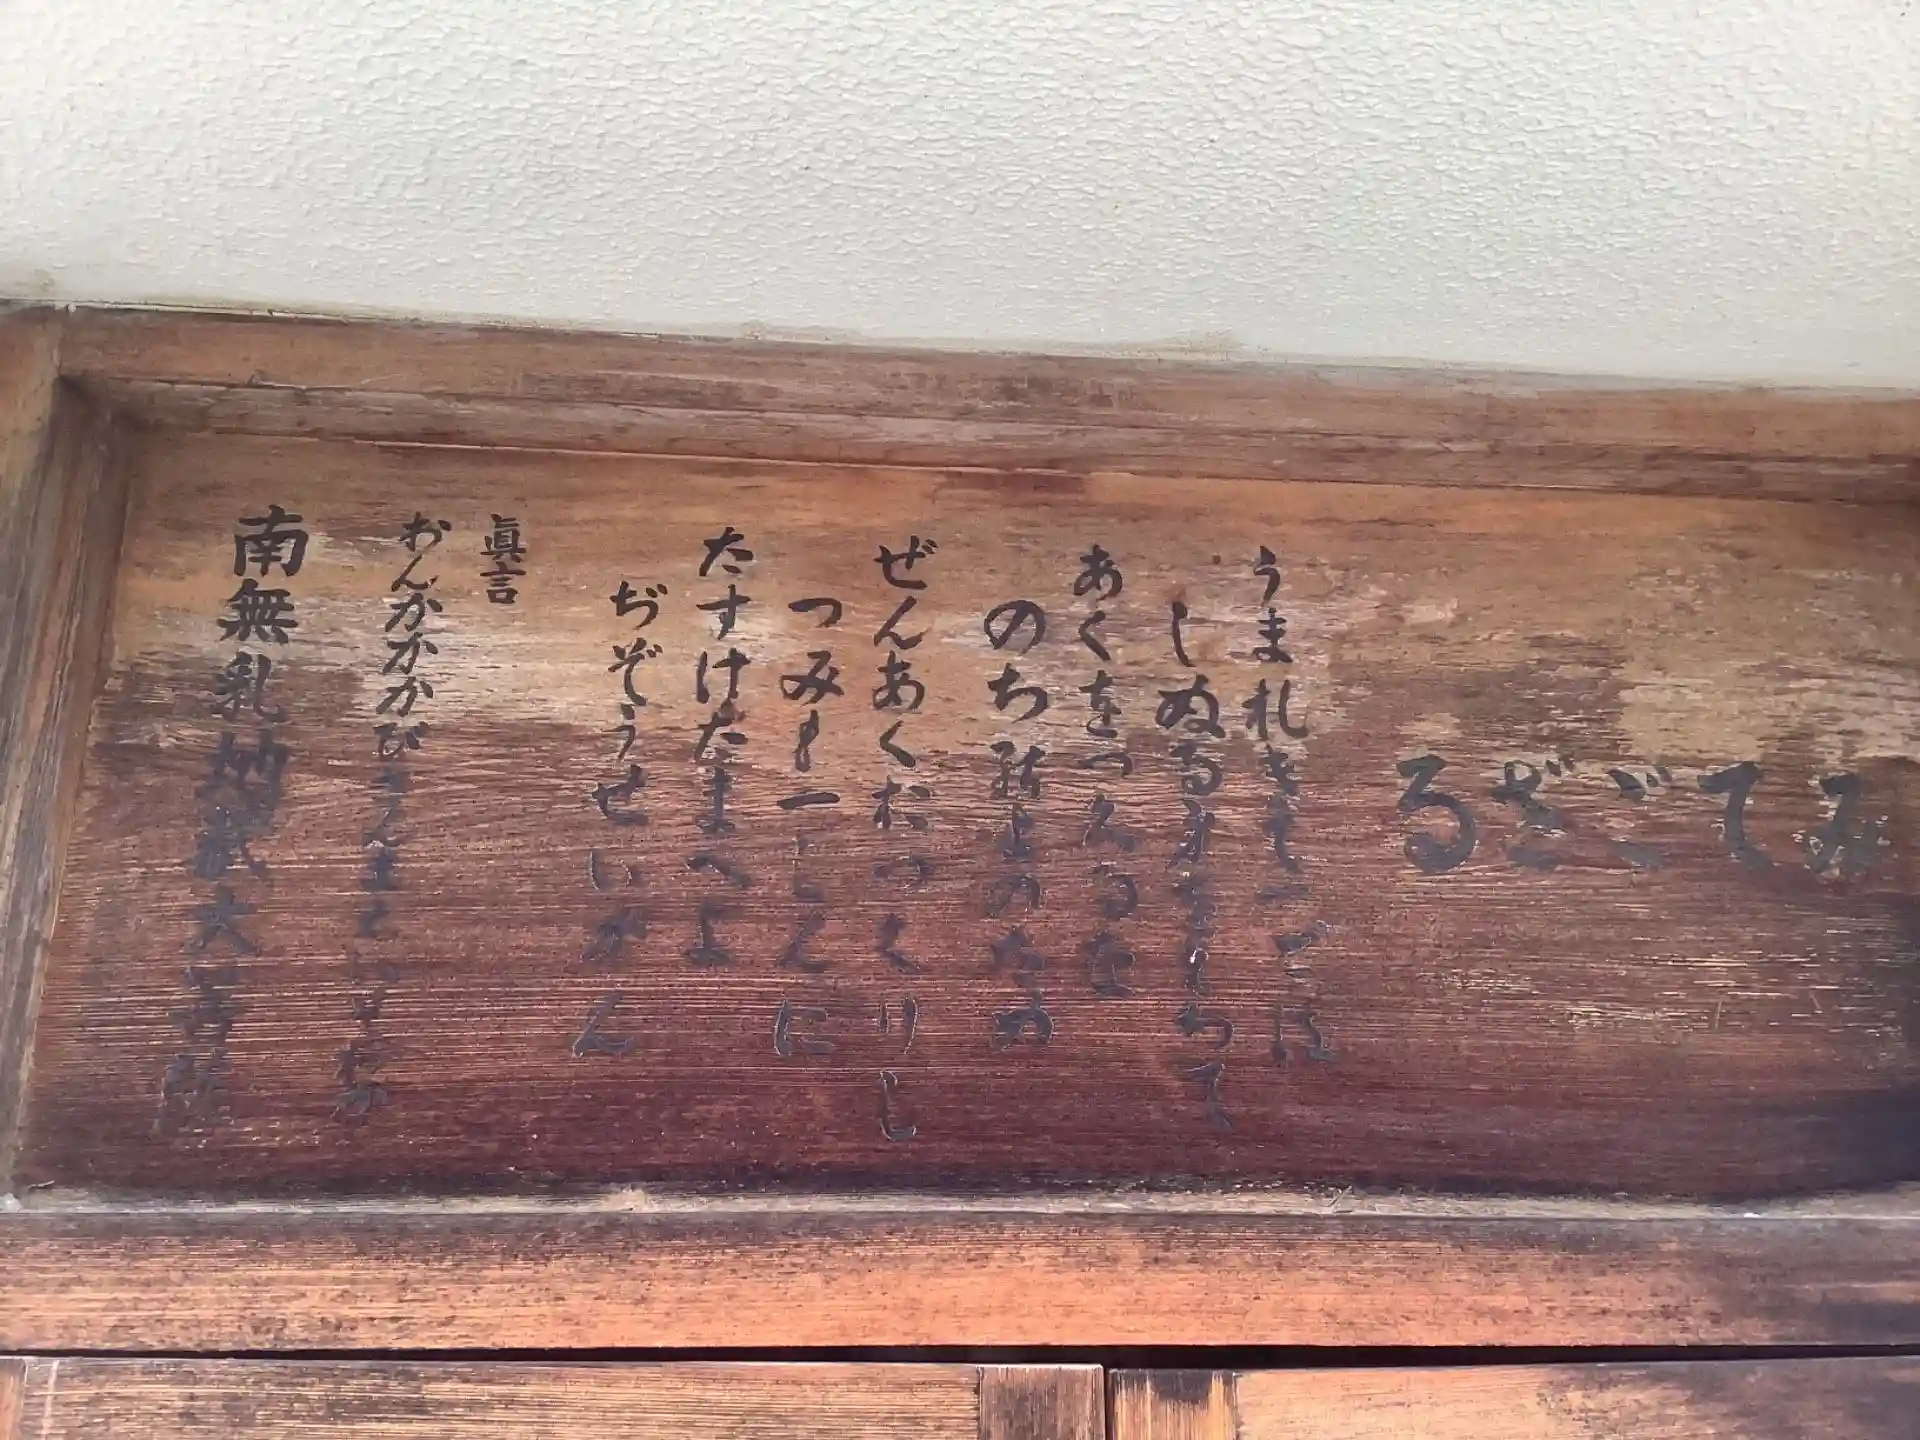 みてござる
うまれきて一どは
しぬる身をもちて
あくをつくるな
のち能よのため
ぜんあくおつくりし
つみも一しんに
たすけたまへよ
ぢぞうせいがん
眞言
おんかかかびさんまえいそわか
南無乳大菩薩